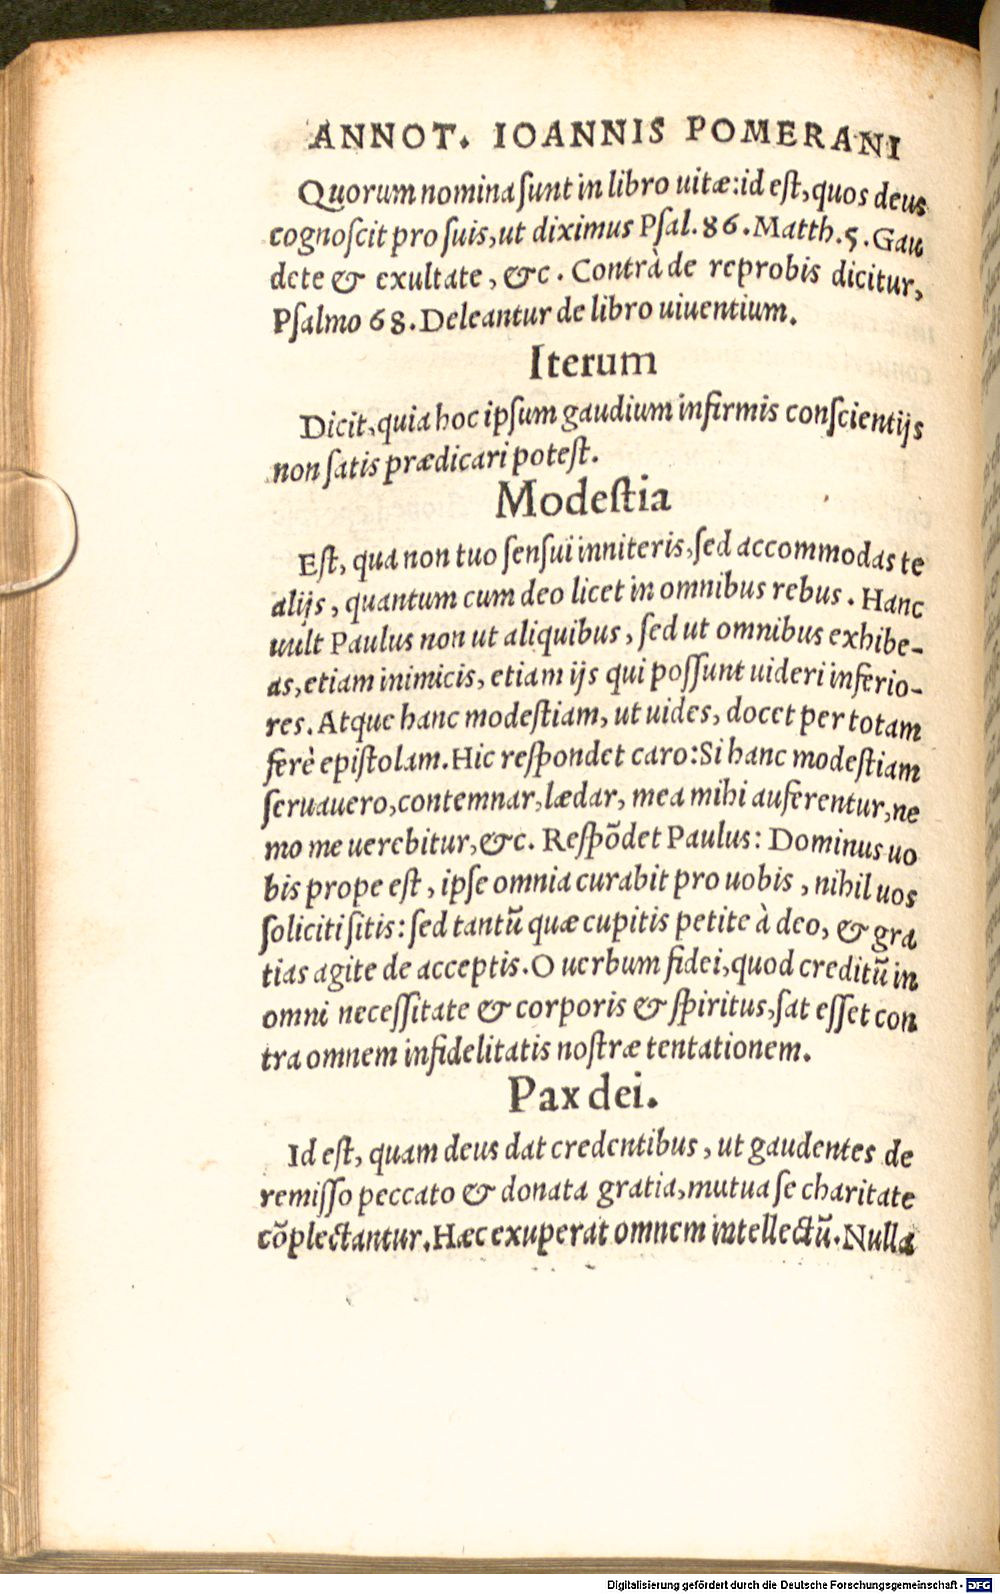 ANNOT. IOANNIS POMERANI
Quorum nomina ſunt in libro uitæ: id eſt, quos deus
cognoſcit pro ſuis, ut diximus Pſal. 86. Matth. 5. Gau
dete & exultate, &c. Contrà de reprobis dicitur,
Pſalmo 68. Deleantur de libro uiuentium.
Iterum
Dicit, quia hoc ipſum gaudium infirmis conſcientijs
non ſatis prædicari poteſt.
Modeſtia
Eſt, qua non tuo ſenſui inniteris, ſed accommodas te
alijs, quantum cum deo licet in omnibus rebus. Hanc
uult Paulus non ut aliquibus, ſed ut omnibus exhibe-
as, etiam inimicis, etiam ijs qui poſſunt uideri inferio-
res. Atque hanc modeſtiam, ut uides, docet per totam
ferè epiſtolam. Hic reſpondet caro: Si hanc modeſtiam
ſeruauero, contemnar, lædar, mea mihi auferentur, ne
mo me uerebitur, &c. Reſpõdet Paulus: Dominus uo
bis prope eſt, ipſe omnia curabit pro uobis, nihil uos
ſoliciti ſitis: ſed tantũ quæ cupitis petite à deo, & gra
tias agite de acceptis. O uerbum fidei, quod creditũ in
omni neceſſitate & corporis & ſpiritus, ſat eſſet con
tra omnem infidelitatis noſtræ tentationem.
Pax dei.
Id eſt, quam deus dat credentibus, ut gaudentes de
remiſſo peccato & donata gratia, mutua ſe charitate
cõplectantur. Hæc exuperat omnem intellectũ. Nulla
Digitalisierung gefördert durch die Deutsche Forschungsgemeinschaft - DFG